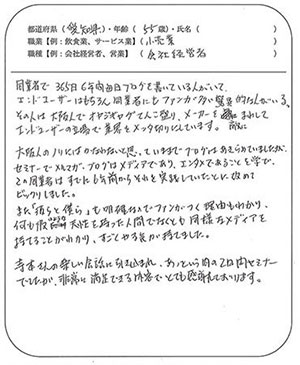 都道府県(愛知県)・年齢(55歳)・氏名( )
職業【例:飲食業、サービス業】(小売業 )
職種【例:会社経営者、営業】(会社経営者 )
同業者で365日6年間毎日ブログを書いている人がいて、
エンドユーザーはもちろん同業者にもファンが多い驚異的な人がいる。
その人は大阪人でオヤジギャグてんこ盛り、メーカーを まれして
エンドユーザーの立場で業界をメッタ切りにしています。 故に
大阪人のノリにはかなわないと思、ていままでブログはあきらめていましたが、
セミナーでメルマガ、ブログはメディアであり、エンタメであることを学び、
この同業者はすでに6年前からそれを実践していたことに改めて
ビックリしました。
また「彼らと僕ら」も明確なのでファンがつく理由もわかり、
何も 天性を持った人間でなくとも同様なメディアを
持てることがわかり、すごくやる気が持てました。
寺本さんの楽しい会話に引き込まれ、あっという間の2日間セミナー
でしたが、非常に満足できる内容でとても感謝しております。